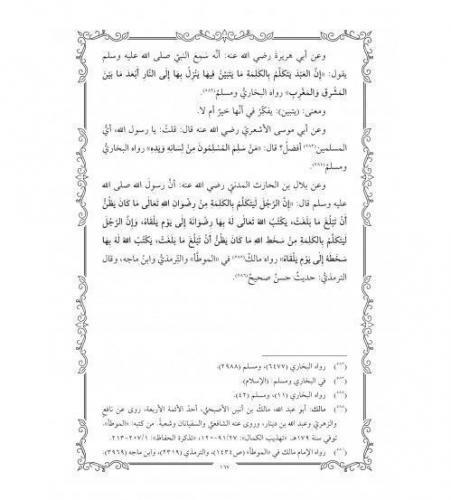 وعن أبي هريرة رضي الله عنه: أنَّه سَمِعَ النبيَّ صلى الله عليه وسلم
يقول: «إنَّ العَبْدَ يَتَكَلَّمُ بِالكَلِمَةِ مَا يَتَبَيَّنُ فِيهَا يَنْزِلُ بِهَا إِلَى النَّارِ أَبْعَدَ مَا بَيْنَ
المَشْرِقِ وَالمَغْرِبِ» رواه البخاريُّ ومسلمٌ.
ومعنى: (يتبين): يفكِّرُ في أنَّها خيرٌ أم لا.
وعن أبي موسى الأشعريِّ رضي الله عنه قال: قلتُ: يا رسول الله، أيُّ
المسلمين أفضلُ؟ قال: «مَنْ سَلِمَ المُسْلِمُونَ مِنْ لِسَانِهِ وَيَدِهِ» رواه البخاريُّ
ومسلمٌ.
وعن بلال بن الحارث المدنيِّ رضي الله عنه: أنَّ رسول الله صلى الله
عليه وسلم قال: «إنَّ الرَّجُلَ لَيَتَكَلَّمُ بِالكَلِمَةِ مِنْ رِضْوَانِ اللهِ تَعَالَى مَا كَانَ يَظُنُّ
أَنْ تَبْلُغَ مَا بَلَغَتْ، يَكْتُبُ اللهُ تَعَالَى لَهُ بِهَا رِضْوَانَهُ إِلَى يَوْمِ يَلْقَاهُ، وإنَّ الرَّجُلَ
لَيَتَكَلَّمُ بِالكَلِمَةِ مِنْ سَخَطِ اللهِ مَا كَانَ يَظُنُّ أَنْ تَبْلُغَ مَا بَلَغَتْ، يَكْتُبُ اللهُ لَهُ بِهَا
سَخَطَهُ إِلَى يَوْمِ يَلْقَاهُ» رواه مالكٌ في «الموطأ» والترمذيُّ وابنُ ماجه، وقال
الترمذيُّ: حديثٌ حسنٌ صحيحٌ.
رواه البخاري (٦٤٧٧)، ومسلم (٢٩٨٨).
في البخاري ومسلم: (الإسلام).
رواه البخاري (١١)، ومسلم (٤٢).
مالك: أبو عبد الله، مالكُ بن أنس الأصبحي، أحدُ الأئمة الأربعة، روى عن نافعٍ
والزهريِّ وعبد الله بن دينار، وروى عنه الشافعيُّ والسفيانان وشعبةُ. من كتبه: «الموطأ».
توفي سنة ١٧٩هـ. «تهذيب الكمال»: ٩١/٢٧-١٢٠، «تذكرة الحفاظ»: ٢٠٧/١-٢١٣.
رواه الإمام مالك في «الموطأ» (ص١٤٣٤)، والترمذي (٢٣١٩)، وابن ماجه (٣٩٦٩).